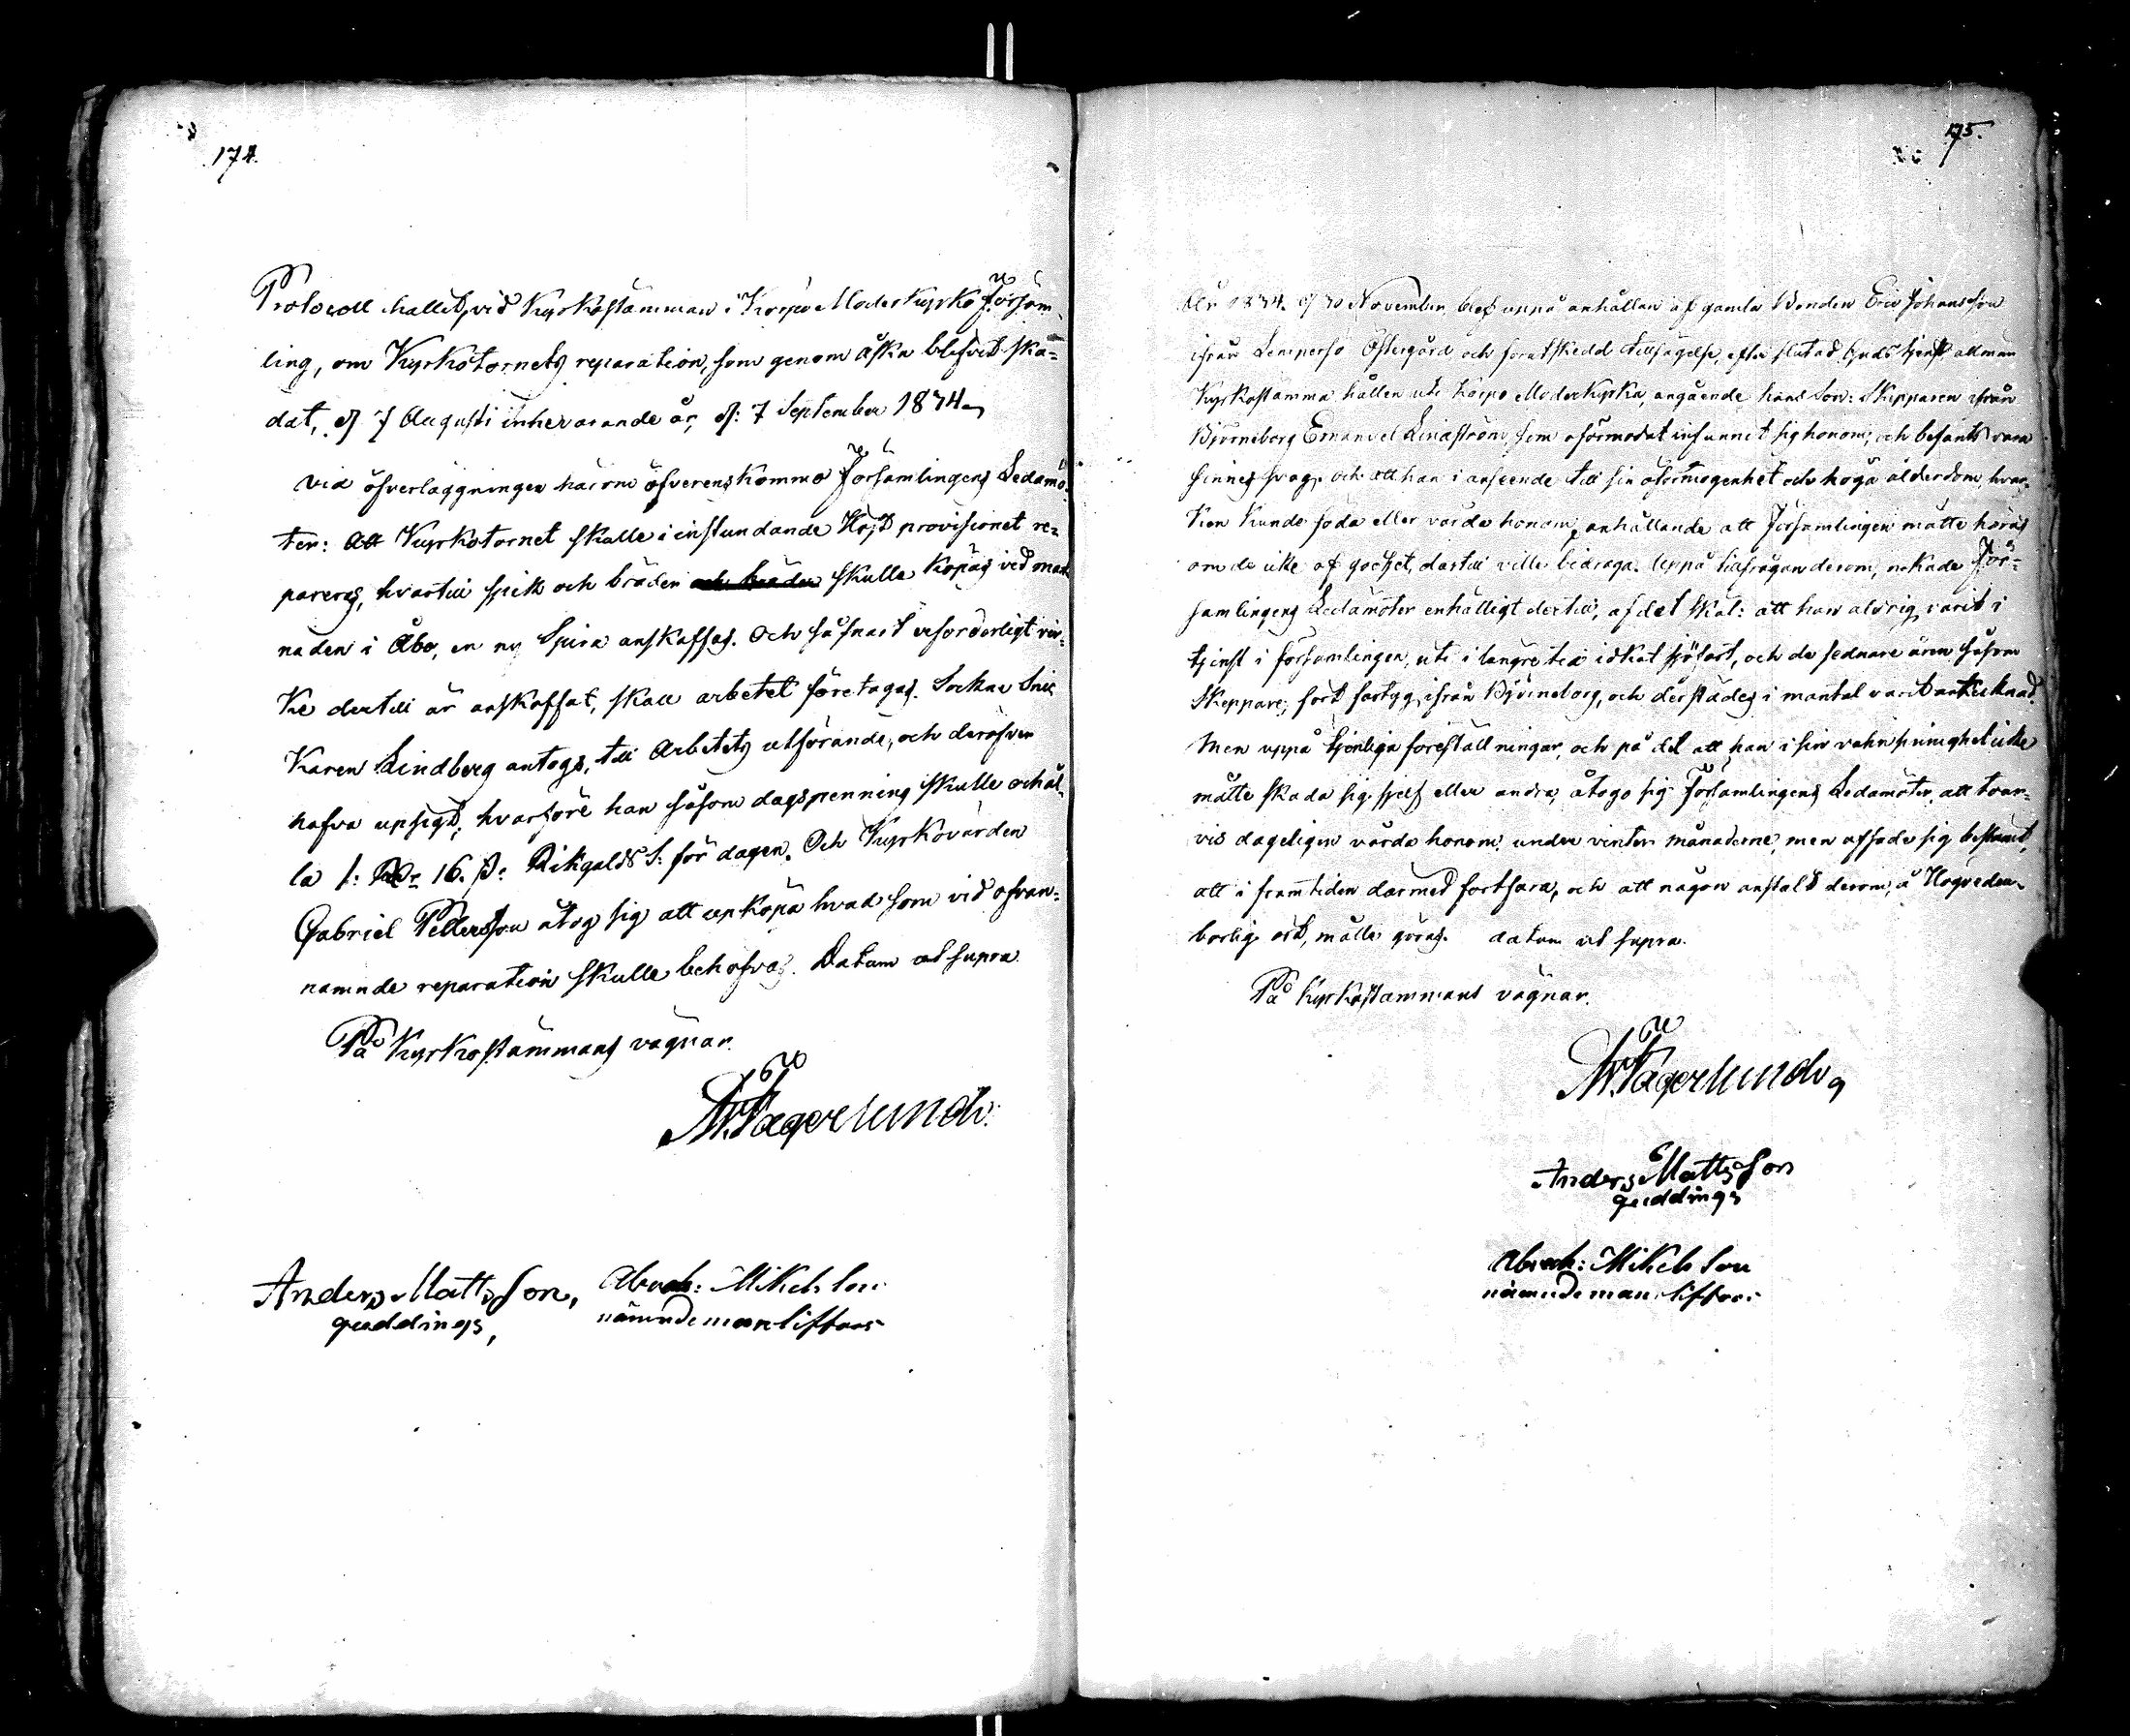 174.
Protocoll hållit, vid Kyrkostämman i Korpo Moderkyrko Församling,
ling, om Kyrkotornets reparation, som genom åska blefvit ska=
dat, d 7 Augusti inhevarande år, d: 7 September 1834.
vid öfverläggningen härom öfverenskommo Församlingens Ledamö=
ter: Att Kyrkotornet skulle i instundande Höst provisionet re=
pareras, hvartill spik och bräden och bräder skulle köpas vid mark
naden i Åbo, en ny Spira anskaffas. Och såsnart erforderligt vir=
ke dertill är anskaffat, skall arbetet företagas. Sockne Snic
karen Lindberg antogs, till Arbetets utförande, och deröfver
hafva upsigt, hvarföre han såsom dagspenning skulle erhål=
la 1: Rdr 16. s: Riksgälds S: för dagen. Och Kyrkovärden
Gabriel Pettersson åtog sig att upköpa hvad som vid ofvan=
nämnde reparation skulle behöfvas. Datum ut supra.
På Kyrkostämmans vägnar.
Fagerlund.
Anders Mattsson, Abrah: Mikelsson
gyddings, nämndeman
175.
År 1834. d 30 November, blef uppå anhållan af gamla Bonden Eric Johansson
ifrån Lempersö Östergård och förutskedd tillsägelse, efter slutad Gudstjenst allmän
Kyrkostämma hållen uti Korpo Moderkyrka, angående hans Son: Skepparen ifrån
Björneborg Emanuel Lindström, som oförmodat infunnit sig honom, och befants vara
sinnes svag, och att han i anseende till sin oförmögenhet och höga ålderdom, hvar=
ken kunde föda eller vårda honom, anhållande att Församlingen måtte höras
om de icke af godhet, dertill ville bidraga. Uppå tillfrågan derom, nekade För=
samlingens Ledamöter enhälligt dertill, af det skäl: att han aldrig varit i
tjenst i församlingen, utj i längre tid idkat sjöfart, och de sednare åren såsom
Skeppare, fört fartyg ifrån Björneborg, och derstädes i mantal varit antecknad.
Men uppå tjenliga föreställningar, och på det att han i sin vahnsinnighet icke
måtte skada sig sjelf eller andra, åtogo sig Församlingens Ledamöter, att tvär=
vis dageligen vårda honom under vinter månaderne, men afsade sig bestämt,
att i framtiden därmed fortfara, och att någon anstalt derom, å Högveder=
börlig ort, måtte göras. datum ut supra.
På Kyrkostämmans vägnar.
Fagerlund
Anders Mattsson
gyddings
Abrah: Mikelsson
nämndeman